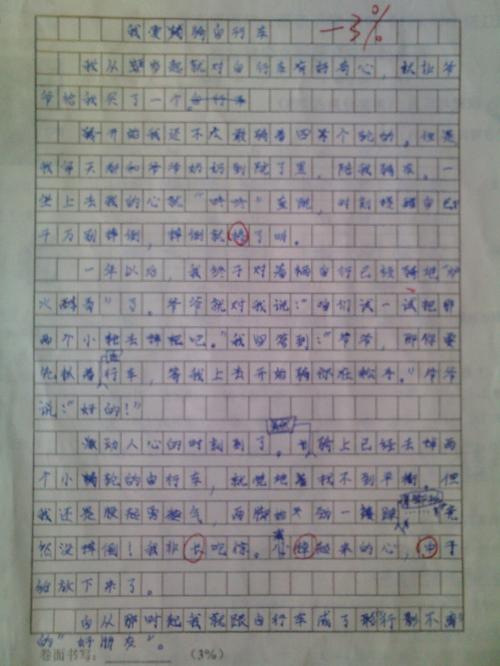 我爱骑自行车 -3%
我从那时起就对自行车有好奇心，就让爷
爷给我买了一个自行车
我一开始我还不大敢骑着四个轮的。但是
我每天都和爷爷奶奶到院子里，陪我骑车。一
坐上去我的心就“咚咚”直跳，
千万别摔倒，摔倒就惨了啊。
一年以后，我终于对着辆自行已经骑地“炉
火醇青”了。爷爷就对我说：“咱们试一试把那
两个小轮去掉把吧。”我回答到：“爷爷，那你要
先扶着行车，等我上去开始骑你在松手。”爷爷
说：“好的！”
激动人心的时刻到了。骑上已经去掉两
个小轮的自行车，就觉地着找不到平衡。但
我还是鼓起勇气，两脚 一蹬 …… 竟
然没摔倒！我非长吃惊。心 起来的心，由于
始放下来了。
自从那时起我就跟自行车成了形影不离
的“好朋友”。
卷面书写：（3%）